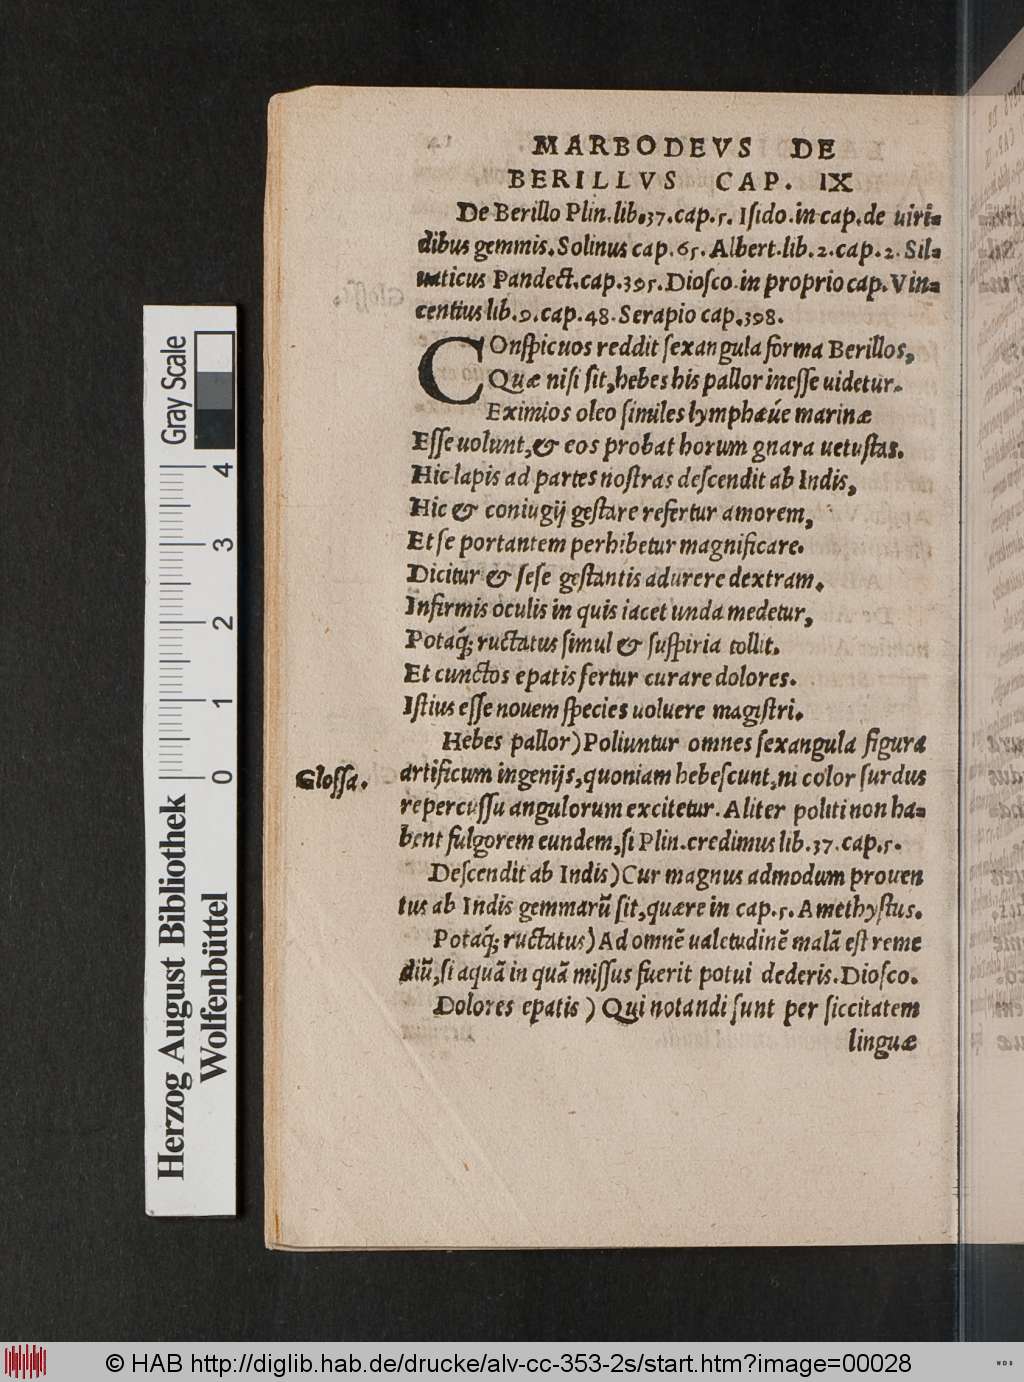 MARBODEVS DE
BERILLVS CAP. IX
De Berillo Plin.lib.37.cap.5. Iſido.in cap.de uiri-
dibus gemmis. Solinus cap.65. Albert.lib.2.cap.2. Sil-
uaticus Pandect.cap.395. Dioſco.in proprio cap. Vin-
centius lib.9.cap.48. Serapio cap.398.
COnſpicuos reddit ſexangula forma Berillos,
Quæ niſi ſit, hebes his pallor ineſſe uidetur.
Eximios oleo ſimiles lymphæúe marinæ
Eſſe uolunt, & eos probat horum gnara uetuſtas.
Hic lapis ad partes noſtras deſcendit ab Indis,
Hic & coniugij geſtare refertur amorem,
Et ſe portantem perhibetur magnificare.
Dicitur & ſeſe geſtantis adurere dextram.
Infirmis oculis in quis iacet unda medetur,
Potaq́; ructatus ſimul & ſuſpiria tollit.
Et cunctos epatis fertur curare dolores.
Iſtius eſſe nouem ſpecies uoluere magiſtri.
Hebes pallor) Poliuntur omnes ſexangula figura
Gloſſa.
artificum ingenijs, quoniam hebeſcunt, ni color ſurdus
repercuſſu angulorum excitetur. Aliter politi non ha-
bent fulgorem eundem, ſi Plin. credimus lib.37.cap.5.
Deſcendit ab Indis) Cur magnus admodum prouen
tus ab Indis gemmarũ ſit, quære in cap.5. Amethyſtus.
Potaq́; ructatus) Ad omnẽ ualetudinẽ malã eſt reme
diũ, ſi aquã in quã miſſus fuerit potui dederis. Dioſco.
Dolores epatis) Qui notandi ſunt per ſiccitatem
linguæ
Gray Scale
4
3
2
1
0
Herzog August Bibliothek
Wolfenbüttel
© HAB http://diglib.hab.de/drucke/alv-cc-353-2s/start.htm?image=00028